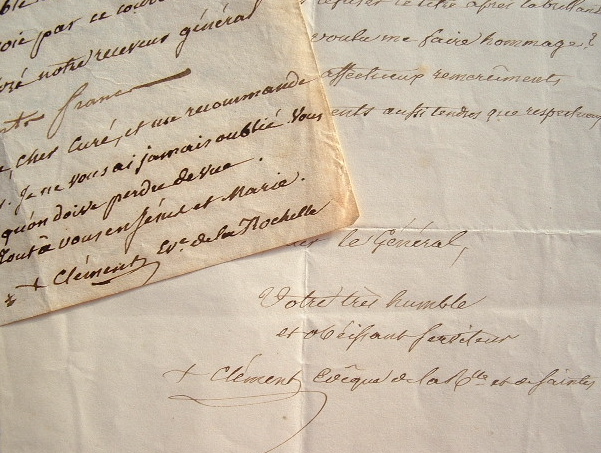 voie par ce courr
notre receveur général
franc
, cher Curé, et me recommande
. Je ne vous ai jamais oublié. Vous
qu'on doive perdre de vue.
Tout à vous en Jésus et Marie.
+ Clément Ev. de la Rochelle
refuser le titre après la
voulu me faire hommage?
affectueux remerciments
ents aussi tendres que respectueux
le Général,
Votre très humble
et obéissant serviteur
+ Clément Evêque de la Rlle et de Saintes